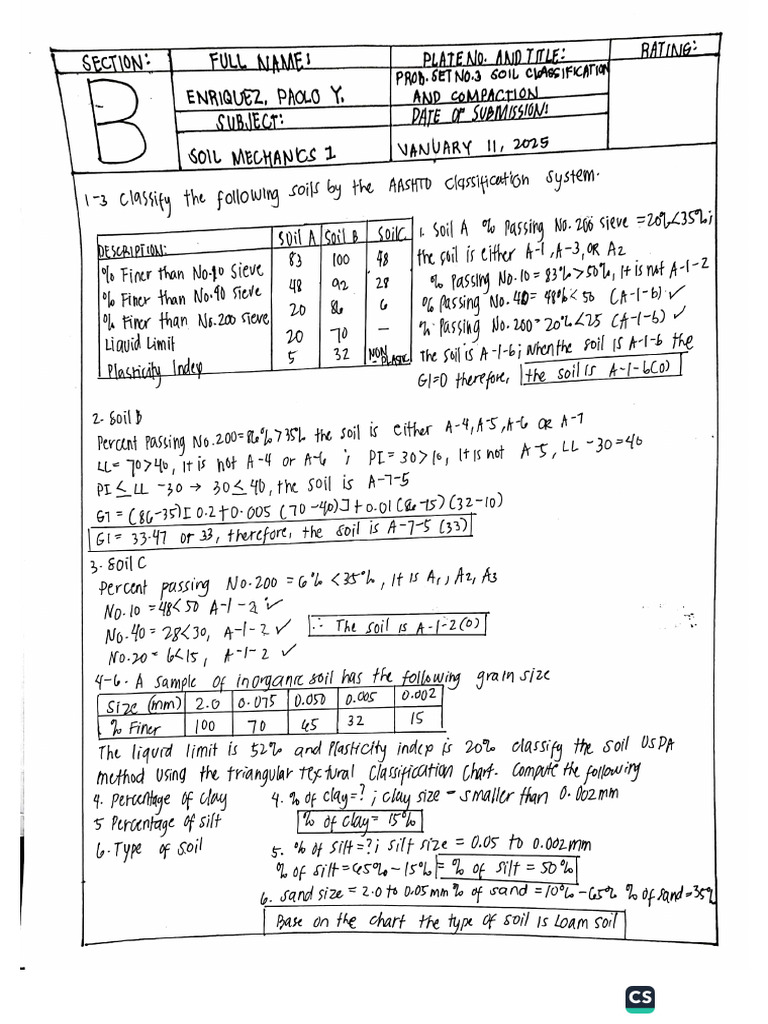 SECTION:
B
FULL NAME:
ENRIQUEZ, PAOLO Y.
SUBJECT:
SOIL MECHANICS 1
PLATE NO. AND TITLE:
PROB. SET NO.3 SOIL CLASSIFICATION
AND COMPACTION
DATE OF SUBMISSION:
VANUARY 11, 2025
RATING:
1-3 Classify the following soils by the AASHTO Classification System.
DESCRIPTION: Soil A Soil B Soil C
% Finer than No.10 Sieve 83 100 48
% Finer than No.40 Sieve 48 92 28
% Finer than No.200 Sieve 20 86 6
Liquid Limit 20 70 —
Plasticity Index 5 32 NON PLASTIC
1. Soil A % Passing No. 200 sieve = 20% < 35%;
the soil is either A-1, A-3, OR A2
% Passing No. 10 = 83% > 50%, It is not A-1-2
% Passing No. 40 = 48% < 50 (A-1-b) ✓
% Passing No. 200 = 20% < 25 (A-1-b) ✓
the soil is A-1-b; when the soil is A-1-b the
GI=0 therefore, the soil is A-1-b(0)
2. Soil B
Percent Passing No. 200 = 86% > 35% the soil is either A-4, A-5, A-6 or A-7
LL = 70 > 40, It is not A-4 or A-6 ; PI = 30 > 10, It is not A-5, LL - 30 = 40
PI ≤ LL - 30 → 30 ≤ 40, the soil is A-7-5
GI = (86-35)[0.2+0.005 (70-40)] + 0.01 (86-15) (32-10)
GI = 33.47 or 33, therefore, the soil is A-7-5 (33)
3. Soil C
Percent passing No. 200 = 6% < 35%, It is A1, A2, A3
No. 10 = 48 < 50 A-1-a ✓
No. 40 = 28 < 30, A-1-2 ✓
No. 20 = 6 < 15, A-1-2 ✓
∴ The soil is A-1-2(0)
4-6. A sample of inorganic soil has the following grain size
Size (mm) 2.0 0.075 0.050 0.005 0.002
% Finer 100 70 65 32 15
The liquid limit is 52% and Plasticity index is 20% classify the soil USDA
method using the triangular textural Classification Chart. Compute the following
4. Percentage of clay
5 Percentage of silt
6. Type of soil
4. % of clay = ? ; clay size - smaller than 0.002mm
% of clay = 15%
5. % of silt = ?; silt size = 0.05 to 0.002mm
% of silt = 65% - 15% = % of silt = 50%
6. sand size = 2.0 to 0.05 mm % of sand = 10% - 65% % of sand = 35%
Base on the chart the type of soil is Loam soil
CS